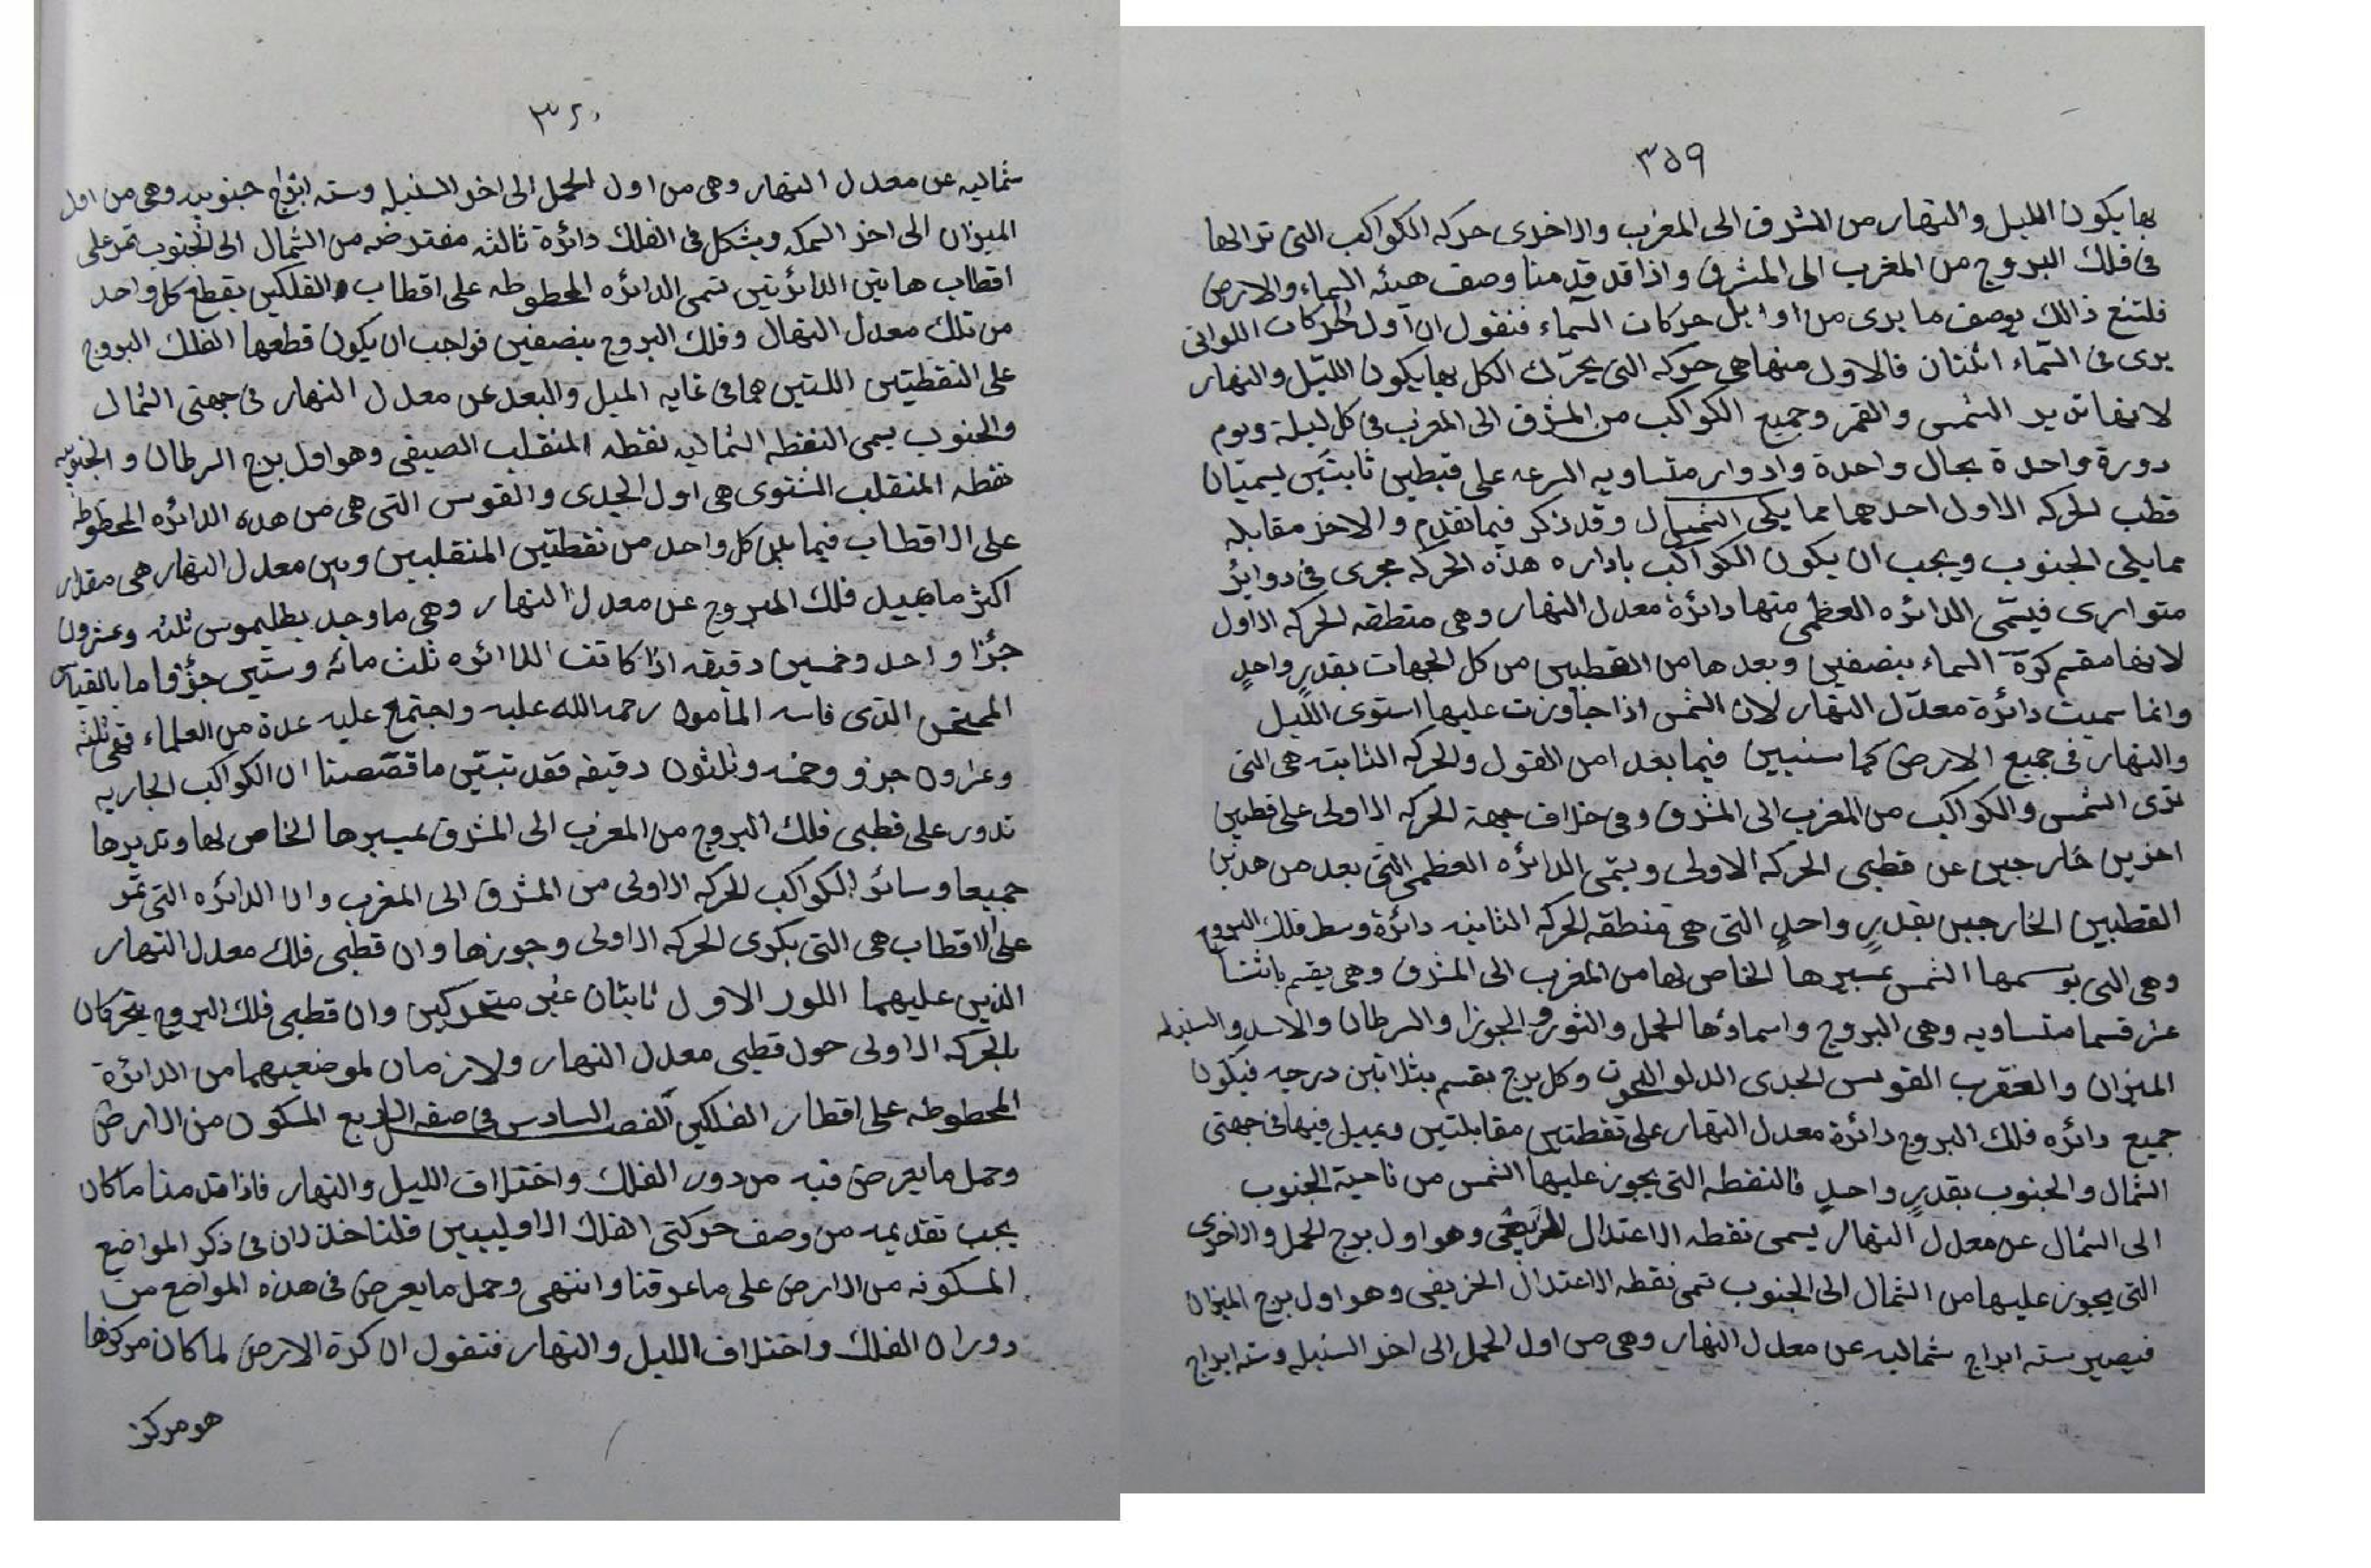 ٣٥٩
بها يكون الليل والنهار من المشرق الى المغرب والاخرى حركه الكواكب التى تراها
فى فلك البروج من المغرب الى المشرق واذا قد قدمنا وصف هيئه السماء والارض
فلتتبع ذالك بوصف ما يرى من اوايل حركات السماء فنقول ان اول الحركات اللواتى
يرى فى السّماء اثنتان فالاول منها هى حركه التى يحرّك الكل بها يكون الليّل والنهار
لانها تدير الشمس والقمر وجميع الكواكب من المشرق الى المغرب فى كل ليلة ويوم
دورة واحدة بحال واحدة وادوار متساويه السرعه على قبطين ثابتين يسميّان
قطب لحركه الاول احدهما مما يلى الشمال وقد ذكر فيما تقدم والاخر مقابله
مما يلى الجنوب ويجب ان يكون الكواكب باداره هذه الحركه مجرى فى دوائر
متوازى فيسمّى الدائره العظمى منها دائرة معدل النهار وهى منطقه لحركه الاول
لانها مقسم كرة السماء بنصفين وبعدها من القطبين من كل الجهات بقدرٍ واحدٍ
وانما سميت دائرة معدّل النهار لان الشمس اذا جاوزت عليها استوى الليل
والنهار فى جميع الارض كما سنبين فيما بعد امن القول والحركه الثابته هى التى
ترى الشمس والكواكب من المغرب الى المشرق وفى خلاف جهة الحركه الاولى على قطبين
اخرين خارجين عن قطبى الحركه الاولى ويسمى الدائره العظمى التى بعد من هذين
القطبين الخارجين بقدرٍ واحدٍ التى هى منطقه لحركه الثانيه دائرة وسط فلك البروج
وهى التى توسمها الشمس بمسيرها الخاص لها من المغرب الى المشرق وهى يقسم باثنتا
عشر قسما متساويه وهى البروج واسماؤها الحمل والثور والجوزا والسرطان والاسد والسنبله
الميزان والعقرب القوس الجدى الدلو الحوت وكل برج يقسم بثلاثين درجه فيكون
جميع دائره فلك البروج دائرة معدل النهار على نقطتين مقابلتين ويميل فيها فى جهتى
الشمال والجنوب بقدرٍ واحدٍ فالنقطه التى يجوز عليها الشمس من ناحية الجنوب
الى الشمال عن معدل النهار يسمى نقطه الاعتدال الربيعى وهو اول برج الحمل والاخرى
التى يجوز عليها من الشمال الى الجنوب تسمى نقطه الاعتدال الخريفى وهو اول برج الميزان
فيصير سته ابراج شماليه عن معدل النهار وهى من اول الحمل الى اخر السنبله وسته ابراج
٣٦٠
شماليه عن معدل النهار وهى من اول الحمل الى اخر السنبله وسته ابراج جنوبيه وهى من اول
الميزان الى اخر السمكه ويشكل فى الفلك دائرة ثالثه مفترضه من الشمال الى الجنوب تمر على
اقطاب هاتين الدائرتين تسمى الدائره المخطوطه على اقطاب الفلكين يقطع كل واحد
من تلك معدل النهال وفلك البروج بنصفين فواجب ان يكون قطعها الفلك البروج
على النقطيتين اللتين هما فى غايه الميل والبعد عن معدل النهار فى جهتى الشمال
والجنوب يسمى النقطه الشماليه نقطه المنقلب الصيفى وهو اول برج السرطان والجنوبيه
نقطه المنقلب الشتوى هى اول الجدى والقوس التى هى من هده الدائره المخطوطه
على الاقطاب فيما بين كل واحد من نقطتين المنقلبين وبين معدل النهار هى مقدار
اكثر ما يميل فلك البروج عن معدل النهار وهى ما وجد بطليموس ثلثه وعشرون
جزا واحد وخمسين دقيقه اذا كانت الدائره ثلث مائه وستين جزؤ فاما بالقياس
الممتحن الذى قاسه المأمون رحمه الله عليه واجتمع عليه عدة من العلماء فهى ثلثه
وعشرون جزو وخمسه وثلثون دقيقه فقد تبيّن ما قصّصنا ان الكواكب الجاريه
تدور على قطبى فلك البروج من المغرب الى المشرق بمسيرها الخاص لها وتديرها
جميعا وسائر الكواكب لحركه الاولى من المشرق الى المغرب وان الدائره التى تمر
على الاقطاب هى التى بكرى لحركه الاولى وجوزها وان قطبى فلك معدل النهار
الذين عليهما اللور الاول ثابتان غير متحركين وان قطبى فلك البروج يتحركان
بالحركه الاولى حول قطبى معدل النهار ولازمان لموضعيهما من الدائرة
المخطوطه على اقطار الفلكين الفصل السادس فى صفه الربع المسكون من الارض
وحمل ما يعرض فيه من دور الفلك واختلاف الليل والنهار فاذا قدمنا ما كان
يجب تقديمه من وصف حركتى الفلك الاوليين فلناخذ الان فى ذكر المواضع
المسكونه من الارض على ما عرفنا وانتهى وحمل ما يعرض فى هذه المواضع من
دوران الفلك واختلاف الليل والنهار فنقول ان كرة الارض لما كان مركزها
هو مركز